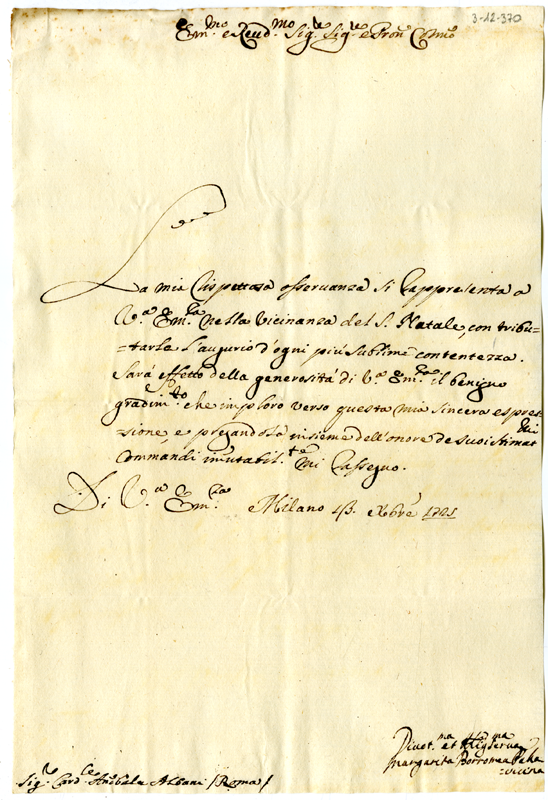 3-12-370
Em.mo e Reud.mo Sig.r Sig.r e Pron Colmo
La mia rispettosa osseruanza si rappresenta a
V.a Em.za nella vicinanza del S. Natale, con tribu-
=tarle l'augurio d'ogni più sublime contentezza.
Sarà effetto della generosità di V.a Em.za il benigno
gradim.to che imploro verso questa mia sincera espres=
=sione, e pregandola insieme dell'onore de suoi stimatmi
Commandi immutabil.te mi rassegno.
Di V.a Em.za Milano Xbre 1721
Diuot.ma et
Margarita Borromea
Sig.r Card.le Annibale Albani /Roma/